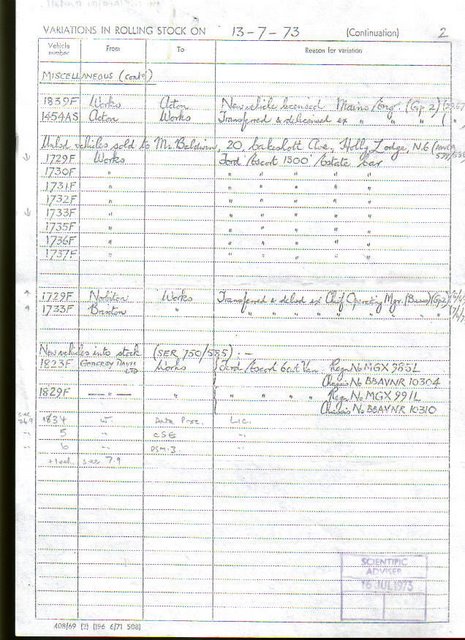 VARIATIONS IN ROLLING STOCK ON 13-7-73 (Continuation) 2
Vehicle number From To Reason for variation
MISCELLANEOUS (contd)
1839F Works Acton New vehicle licensed Mains Eng. (Gp 2)
1454AS Acton Works Transferred & delicensed ex " " " ( "
Unlsd vehicles sold to Mr. Baldwin, 20, Oakeshott Ave, Holly Lodge, N.6
1729F Works Ford Escort 1300 Estate Car
1730F " " " " "
1731F " " " " "
1732F " " " " "
1733F " " " " "
1735F " " " " "
1736F " " " " "
1737F " " " " "
1729F Works Transferred & delsd ex Chief Operating Mgr. (Buses) (Gp2)
1733F Brixton " " " " " " " "
New vehicles into stock (SER 750/585) :-
1823F Godfrey Davis LTD Works Ford Escort 6cwt Van. Regn No MGX 985L
Chassis No BBAVNR 10304
1829F " " " " " Regn No MGX 991L
Chassis No BBAVNR 10310
1834 Data Proc. Lic.
5 CSE "
6 "
SCIENTIFIC
ADVISER
16 JUL 1973